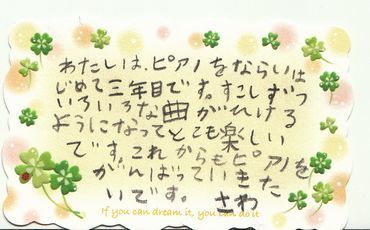 わたしは、ピアノをならいは
じめて三年目です。すこしずつ
いろいろな曲がひける
ようになってとても楽しい
です。これからもピアノを
がんばっていきた
いです。 さわ
If you can dream it, you can do it